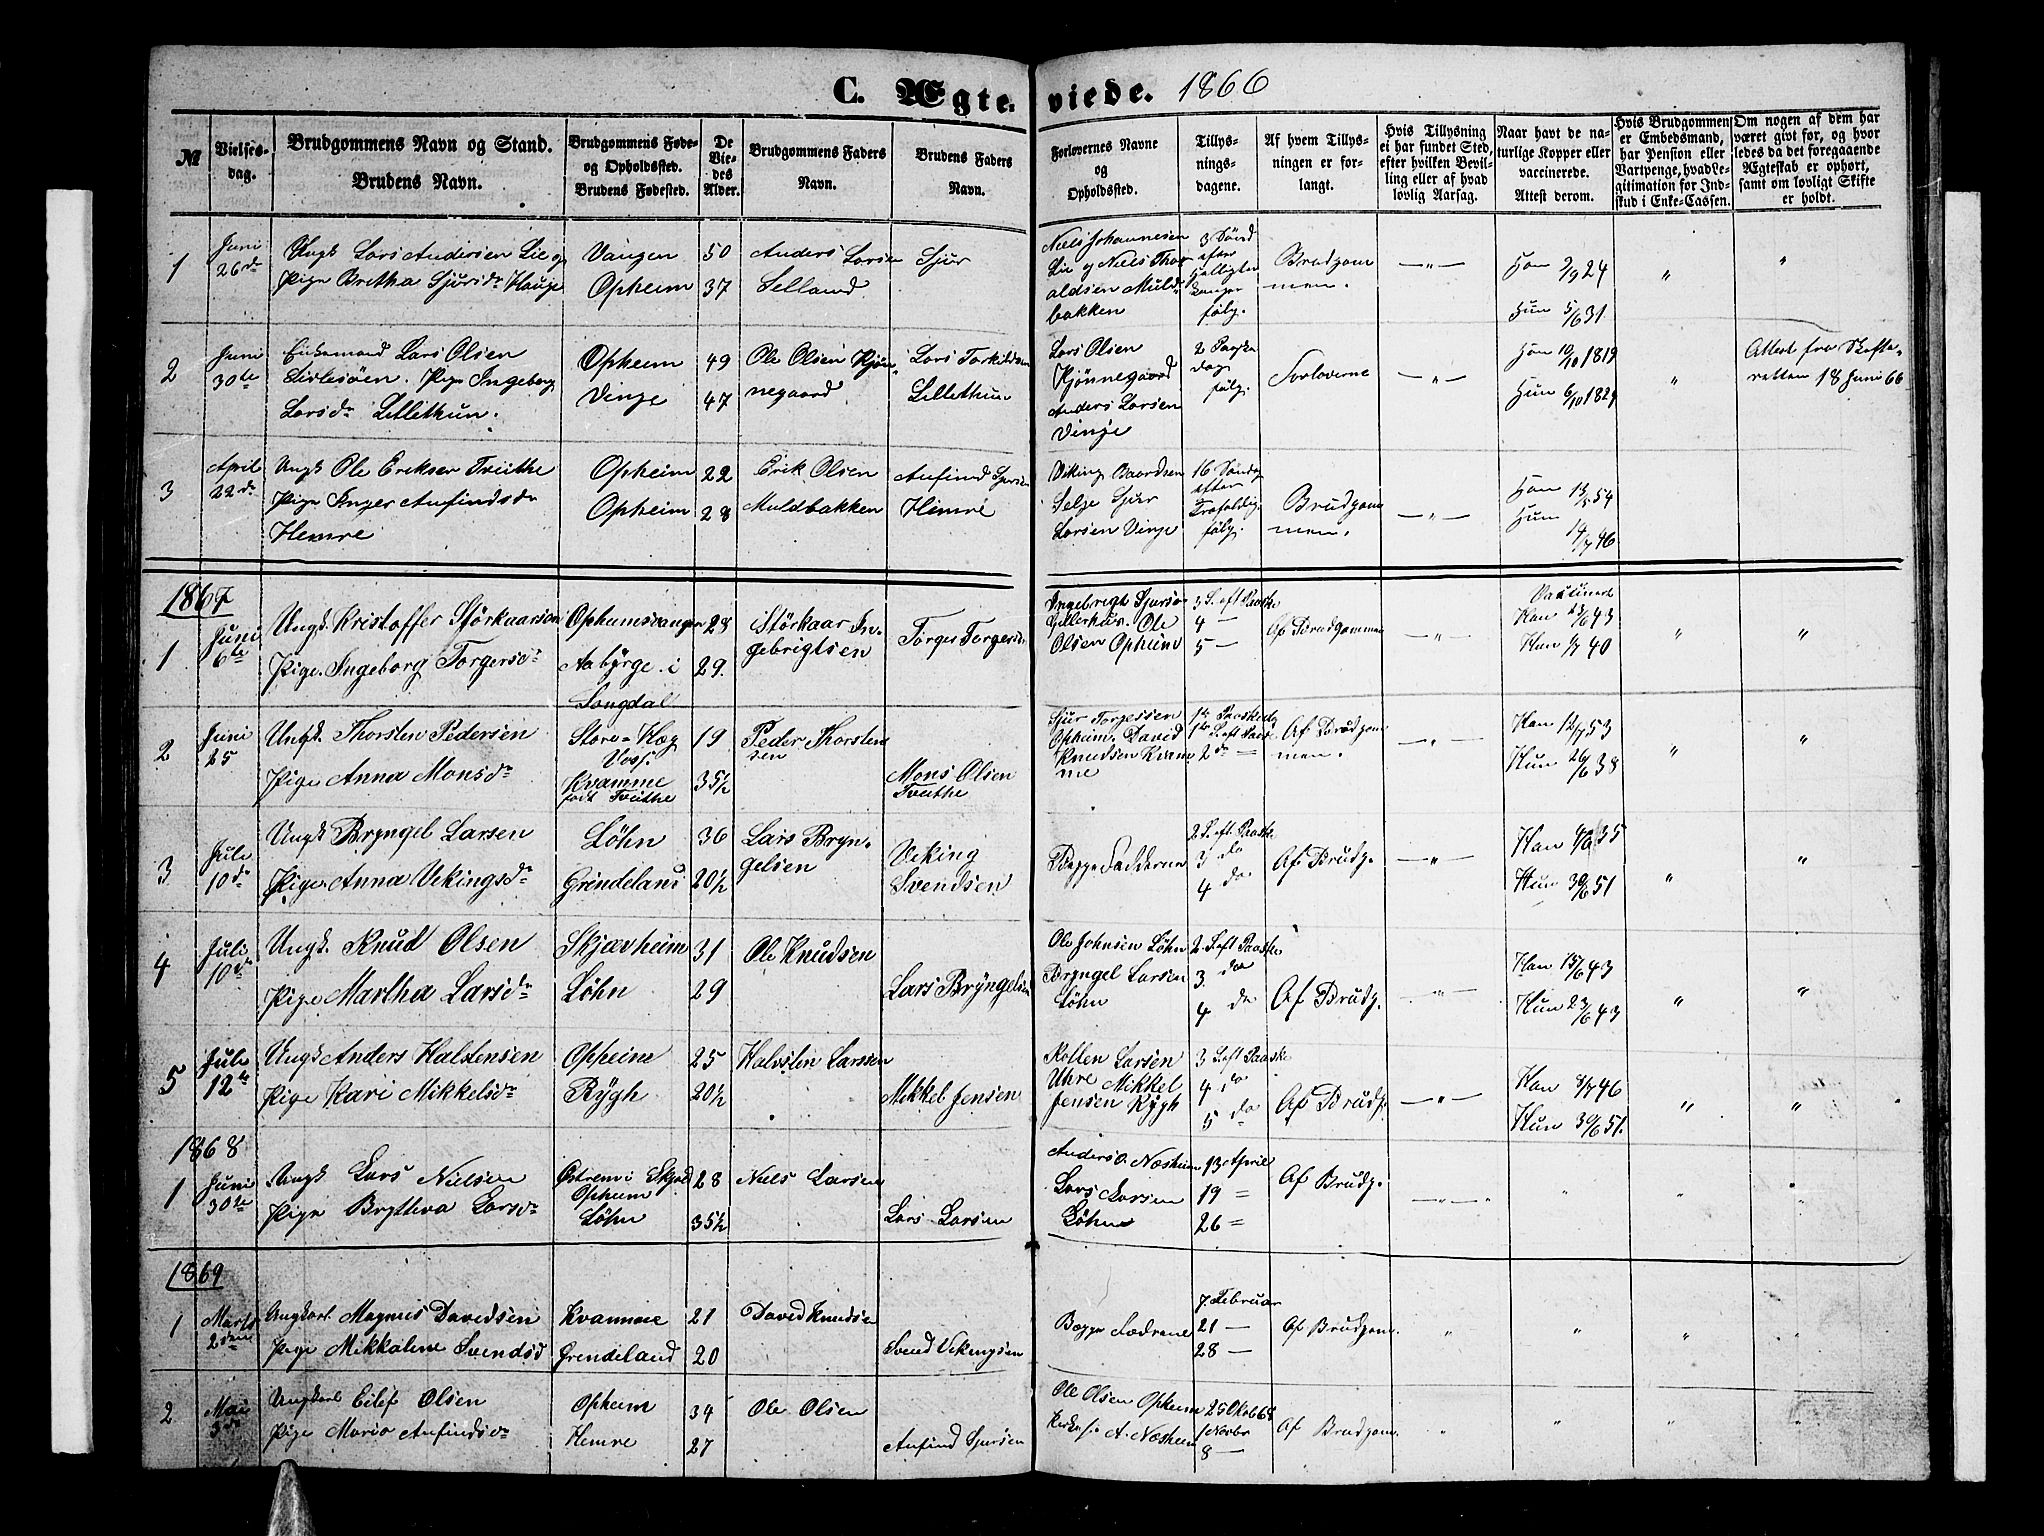 C. Ægteviede. 1866
№
Vielses-
dag.
Brudgommens Navn og Stand.
Brudens Navn.
Brudgommens Føde-
og Opholdssted.
Brudens Fødested.
De
Vie-
des
Alder.
Brudgommens Faders
Navn.
Brudens Faders
Navn.
Forlovernes Navne
og
Opholdssted.
Tillys-
nings-
dagene.
Af hvem Tillys-
ningen er for-
langt.
Hvis Tillysning
ei har fundet Sted,
efter hvilken Bevil-
ling eller af hvad
lovlig Aarsag.
Naar havt de na-
turlige Kopper eller
vaccinerede.
Attest derom.
Hvis Brudgommen
er Embedsmand,
har Pension eller
Vartpenge, hvad Le-
gitimation for Ind-
skud i Enke-Cassen.
Om nogen af dem har
været givt før, og hvor
ledes da det foregaaende
Ægteskab er ophørt,
samt om lovligt Skifte
er holdt.
1
Juni
26de
Ungk Lars Andersen Lie og
Pige Bretha Sjursdr Hauge
Vangen
Opheim
50
37
Anders Larsen
Selland
Sjur
Niels Johannesen
Lie og Niels Thor
aldsen Muld-
bakken
3 Sønd
efter
følg.
Brudgom
men.
Ham 9/9 24
Hun 5/6 31
2
Juni
30te
Enkemand Lars Olsen
Pige Ingeborg
Larsdr Lillethun.
Opheim
Vinje
49
47
Ole Olsen Kjøn-
negaard
Lars Torkildsen
Lillethun
Lars Olsen
Kjønnegaard
Anders Larsen
Vinje
2 Paaske
dag
følg.
Forloverne
Ham 10/10 1819
Hun 6/10 1829
Attest fra Skifte-
retten 18 Juni 66
3
April
22de
Ungk Ole Eriksen Tveithe
Pige Inger Anfindsdr
Hemre
Opheim
Opheim
22
28
Erik Olsen
Muldbakken
Anfind Sjursen
Himre
Viking Baardsen
Selje Sjur
Larsen Vinje
16 Søndag
efter
Trefoldig.
følg.
Brudgom
men.
Ham 54
Hun
46
1867
1
Juni
6te
Ungk. Kristoffer Størkaarson
Pige. Ingeborg Torgersdr
Ophumsvangen
Aabyrge i
Songdal
28
29.
Størkaar In-
gebrigtsen
Torger Torgersen
Ingebrigt Sjurso
Gillerhus. Ole
Olsen Opheim
3 S. eft Paaske
4 —
5 —
Af Brudgommen
Han 43
Han 40
2
Juni
25
Ungk. Thorsten Pedersen
Pige Anna Monsdr
Store-Høg
Vos.
Kvamme
født Tveithe
19
35½
Peder Thorsten
sen
Mons Olsen
Tveithe
Sjur Torgessen
Opheim. David
Knudsen Kvam
me
2de —
Af Brudgom
men.
Han 12/7 53
Hun 26/6 38
3
Juli
10de
Ungk Bryngel Larsen
Pige Anna Vekingsdr
Løhn
Grindeland
36
20½
Lars Bryn-
gelsen
Veking
Svendsen
Begge Fadderne
2 S. eft Paaske
3 do
4 do
Af Brudg.
Han 35
Hun 30/6 51
4
Juli
10de
Ungk. Knud Olsen
Pige Martha Larsdr
Skjævheim
Løhn
31
29
Ole Knudsen
Lars Bryngelsen
Ole Johnsen Løhn
Bryngel Larsen
Løhn
2 S. eft Paaske
3. do
4 do
Af Brudg.
Han 15/6 43
Hun 23/6 43
5
Juli
12te
Ungk Anders Halstensen
Pige Kari Mikkelsdr
Opheim
Rygh
25
20½
Halvsten Larsen
Mikkel Jensen
Kolben Larsen
Uhre Mikkel
Jensen Rygh
3 S. eft Paaske
4 do
5 do
Af Brudg.
Han 8/7 46
Hun 30/6 51.
1868
1
Juni
30te
Ungk Lars Nielsen
Pige Brytteva Larsdr
Østrem i Skjold
Opheim
Løhn
28
35½
Niels Larsen
Lars Larsen
Anders O. Næsheim
Lars Larsen
Løhne
13 April
19 =
26 =
Af Brudg.
1869
1
Marts
2den
Ungkarl Magnus Davidsen
Pige Mikkaline Svendsd
Kvamme
Grendeland
21
20
David Knudsen
Svend Vekingsen
Begge Fædrene
7. Februar
21 —
28 —
Af Brudgom.
2
Mai
Ungkarl Eilif Olsen
Pige Maria Anfindsdr
Opheim
Hemre
34
27
Ole Olsen
Anfind Sjursen
Ole Olsen Opheim
A. Næsheim
25 Oktob 68
1 Novbr
8 —
Af Brudgom.